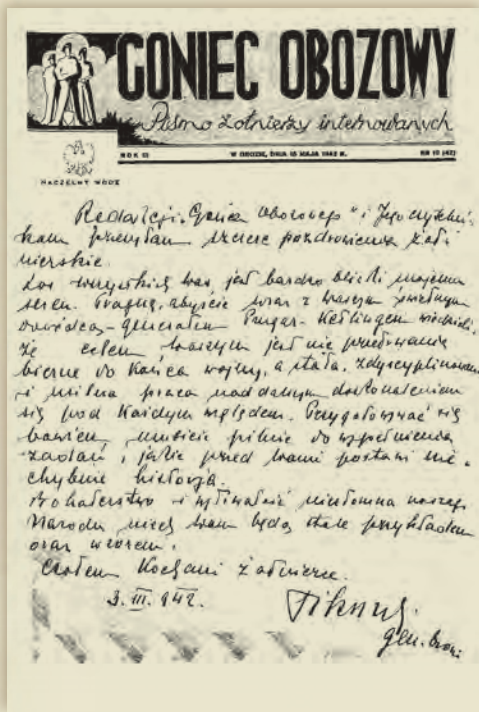 GONIEC OBOZOWY
Pismo żołnierzy internowanych
ROK III W OBOZIE, DNIA 15 MAJA 1942 R. NR 10 (42)
NACZELNY WÓDZ
Redakcji „Gońca Obozowego" i Jego czytelni-
kom przesyłam szczere pozdrowienia żoł-
nierskie.
Los wszystkich was jest bardzo bliski mojemu
sercu. Pragnę, abyście wraz z waszym dzielnym
dowódcą - generałem Prugar-Ketlingem wiedzieli,
że celem waszym jest nie przetrwanie
bierne do końca wojny, a stała, zdyscyplinowana
i usilna praca nad dalszym doskonaleniem
się pod każdym względem. Przygotowywać się
bowiem musicie pilnie do wypełnienia
zadań, jakie przed wami postawi nie-
chybnie historja.
Bohaterstwo i wytrwałość niezłomna naszego
Narodu niech wam będą stale przykładem
oraz wzorem.
Czołem Kochani Żołnierze.
3. III. 942. Sikorski
gen. broni